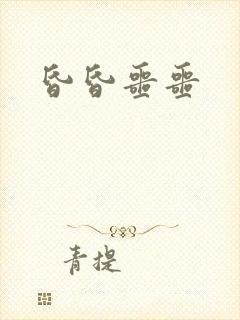 昏昏噩噩
青提